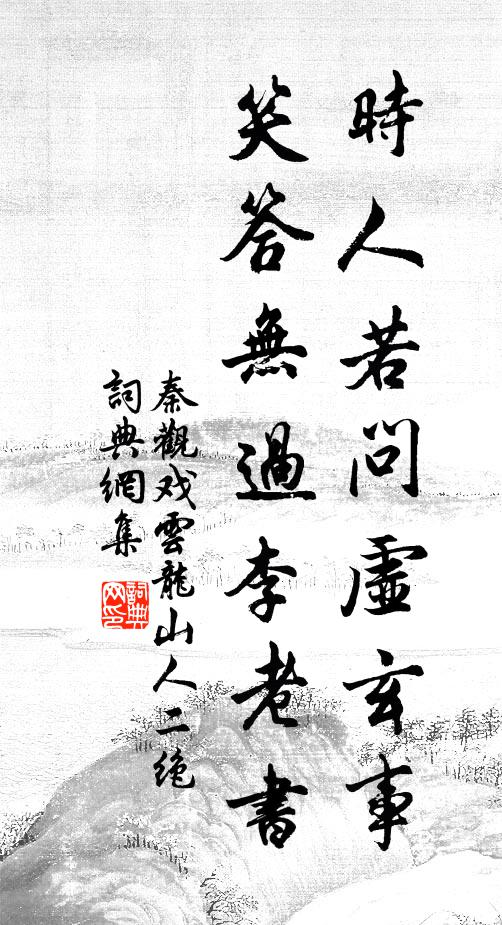 時人若問虛玄事
笑答無過李老書
秦觀戏雲龍山人二絶
詞典網集
詞典网印